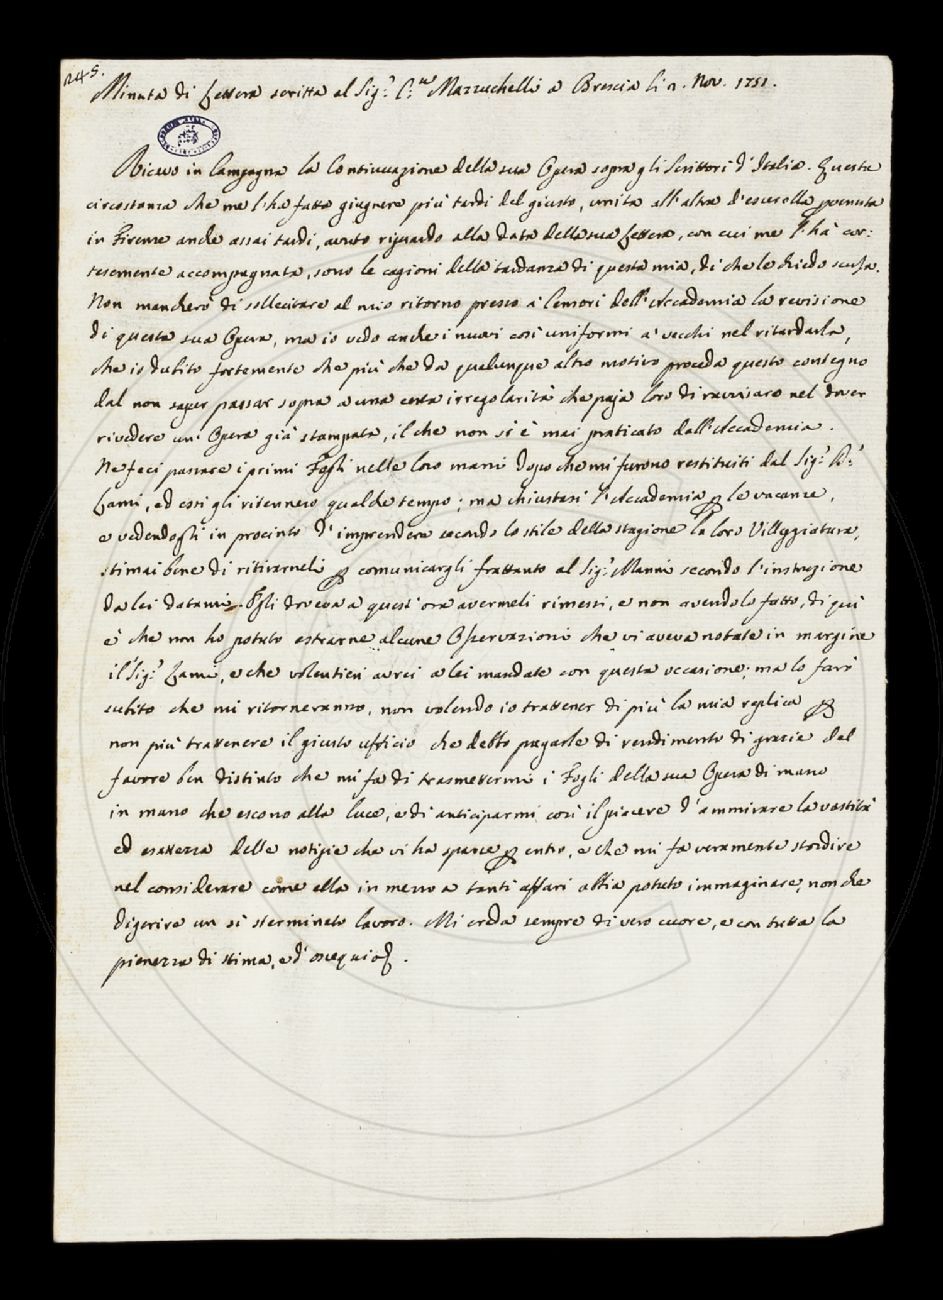 245.
Minuta di Lettera scritta al Sig.r C.te Mazzuchelli a Brescia li Nov. 1751.
Ricevo in Campagna la Continuazione della sua Opera sopra gli Scrittori d'Italia. Questa
circostanza che me l'ha fatta giugnere più tardi del giusto, unita all'altra d'essere pervenuta
in Firenze anche assai tardi, avuto riguardo alla data della sua Lettera, con cui me l'hà cor:
tesemente accompagnata, sono le cagioni della tardanza di questa mia, di che le chiedo scusa.
Non mancherò di sollecitare al mio ritorno presso i Censori dell'Accademia la revisione
di questa sua Opera, ma io vedo anche i nuovi così uniformi a' vecchi nel ritardarla,
che io dubito fortemente che più che da qualunque altro motivo proceda questo contegno
dal non saper passar sopra a una certa irregolarità che paja loro di ravvisare nel dover
rivedere un' Opera già stampata, il che non si è mai praticato dall'Accademia.
Ne feci passare i primi Fogli nelle loro mani dopo che mi furono restituiti dal Sig.r D.r
Lami, ed essi gli ritennero qualche tempo; ma chiustasi l'Accademia p le vacanze,
e vedendogli in procinto d'imprendere secondo lo stile della stagione la loro Villeggiatura,
stimai bene di ritirarneli p comunicargli frattanto al Sig.r Manni secondo l'instruzione
da lei datami. Egli doveva a quest'ora avermeli rimessi, e non avendolo fatto, di qui
è che non ho potuto estrarne alcune Osservazioni che vi aveva notate in margine
il Sig.r Lami, e che volentieri avrei a lei mandate con questa occasione; ma lo farò
subito che mi ritorneranno, non volendo io trattener di più la mia replica p
non più trattenere il giusto ufficio che debbo pagarle di rendimento di grazie del
favore ben distinto che mi fa di trasmettermi i Fogli della sua Opera di mano
in mano che escono alla luce, e di anticiparmi così il piacere d'ammirare la vastità
ed esattezza delle notizie che vi ha sparse p entro, e che mi fa veramente stordire
nel considerare come ella in mezzo a tanti affari abbia potuto immaginare, non che
digerire un sì sterminato lavoro. Mi creda sempre di vero cuore, e con tutta la
pienezza di stima, e d'ossequio